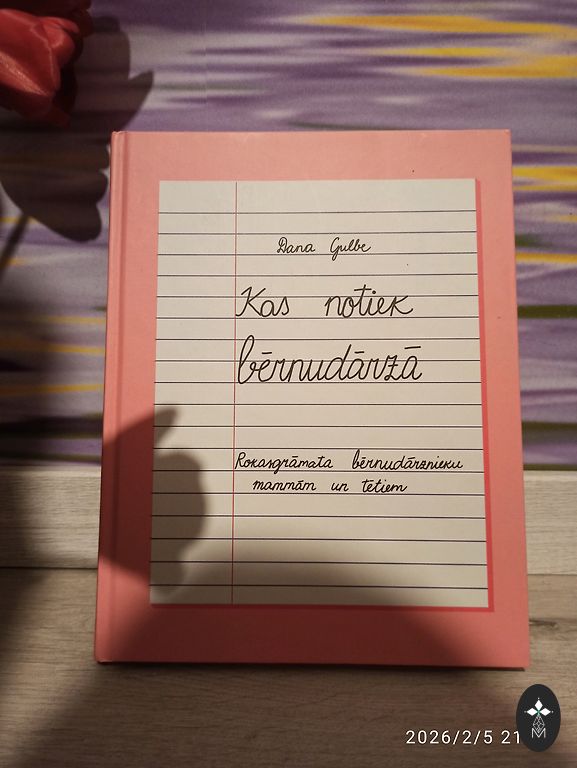 Dana Gulbe
Kas notiek
bērnudārzā
Rokasgrāmata bērnudārznieku
mammām un tētiem
2026/2/5 21